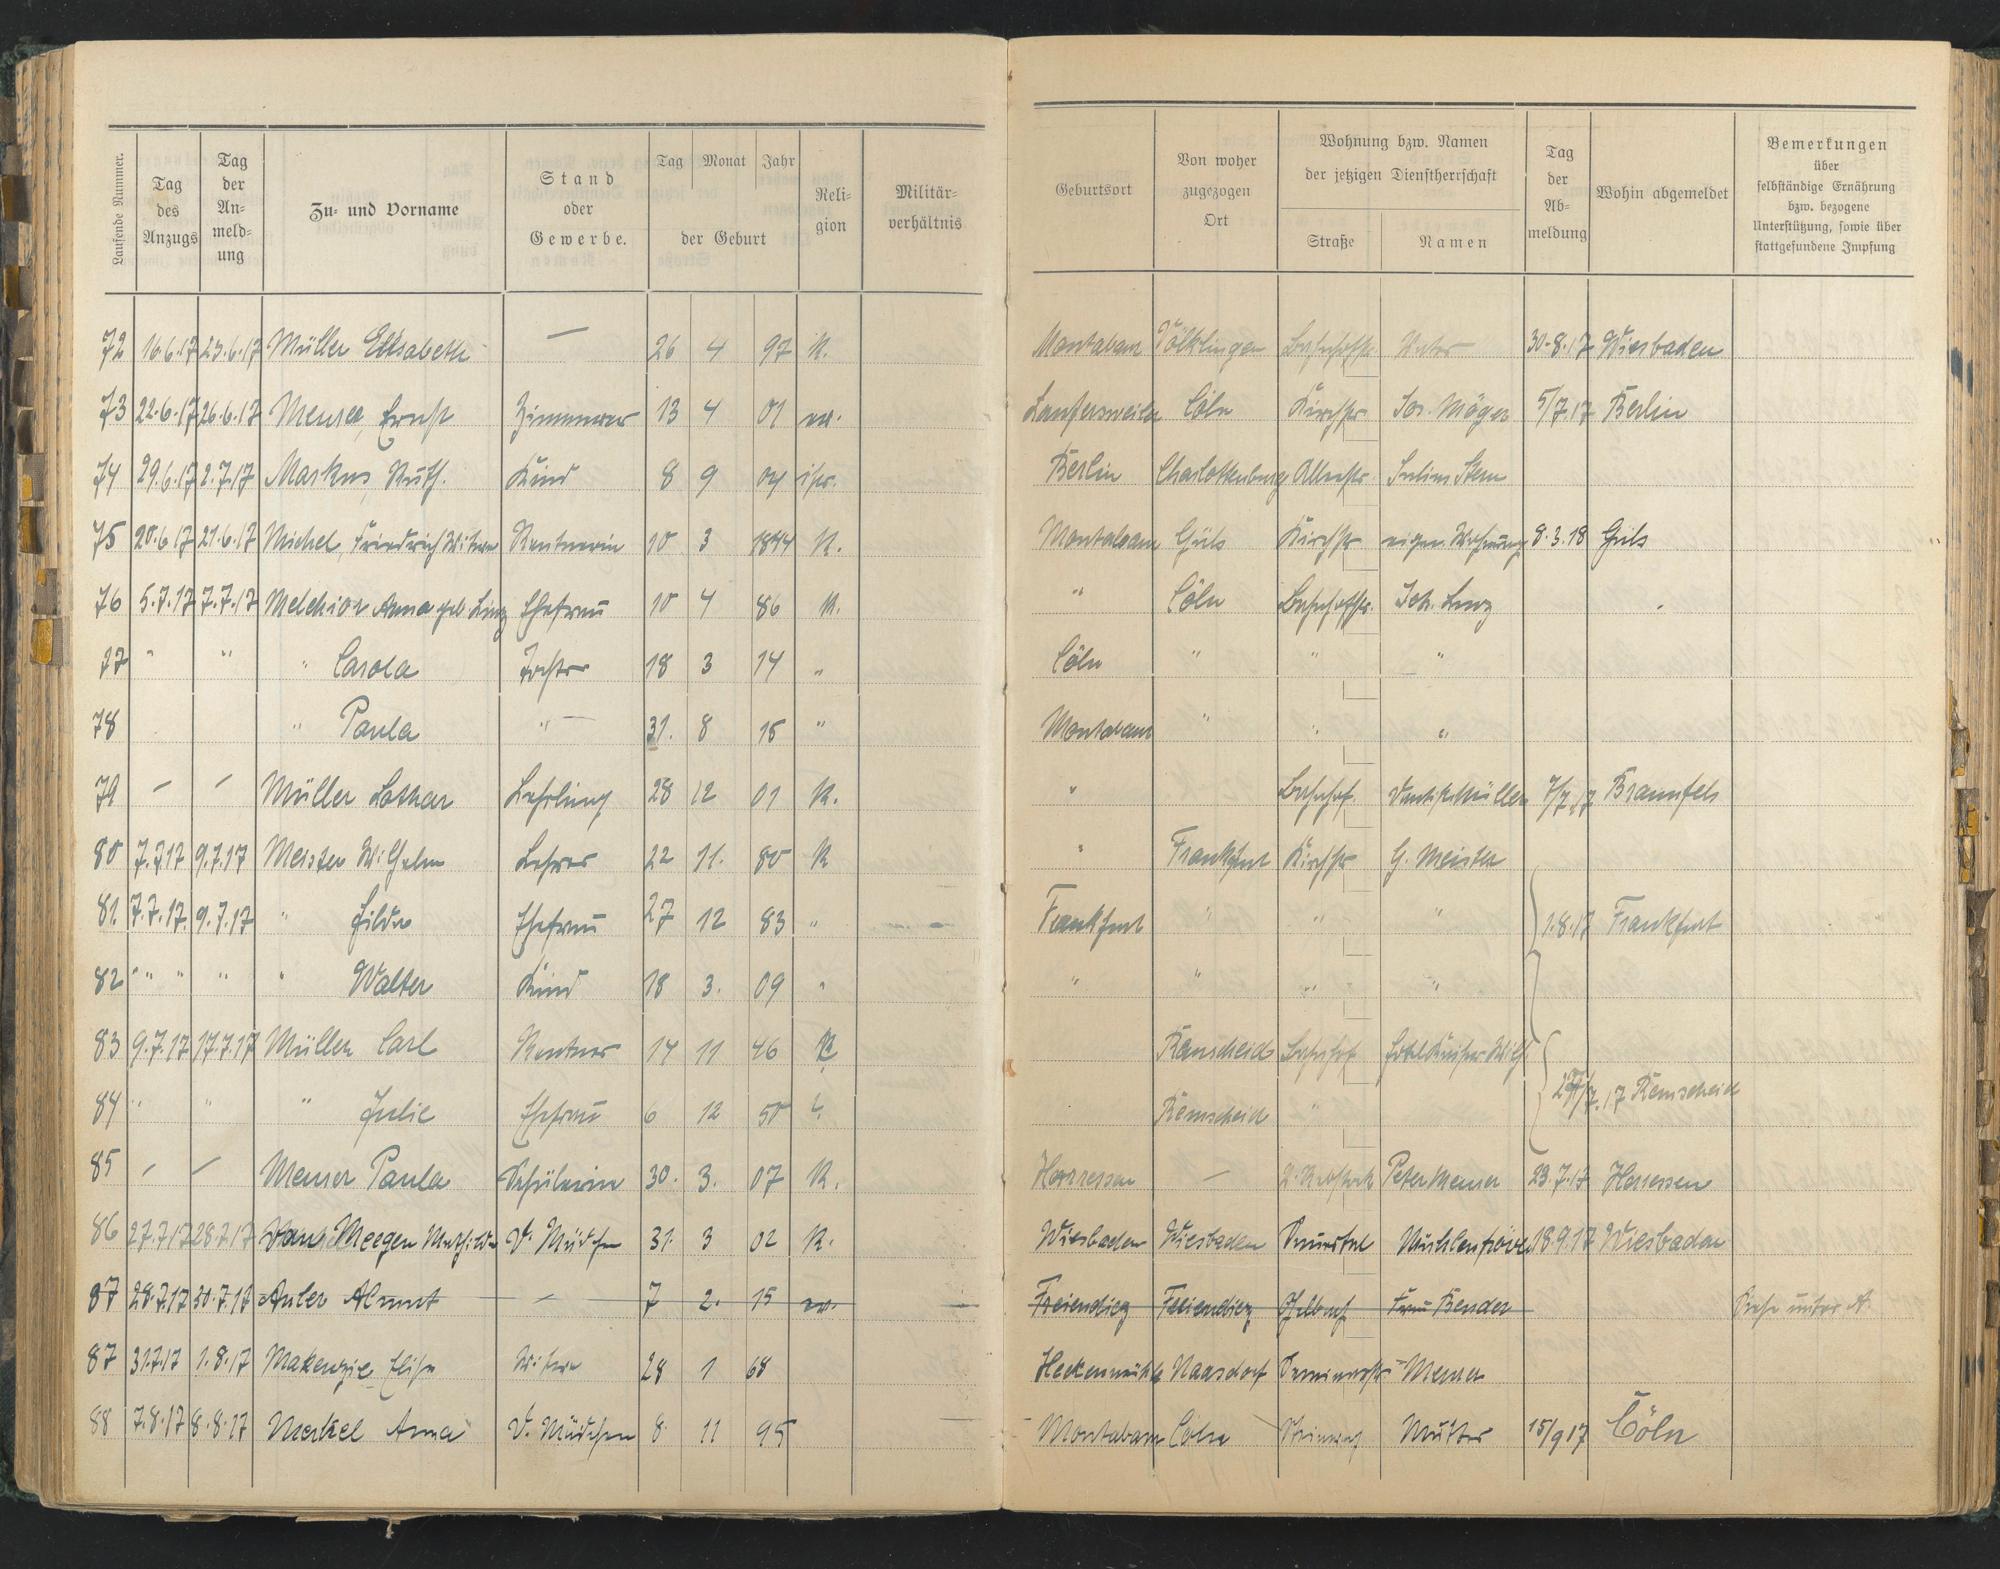 Laufende Nummer. Tag des Anzugs Tag der An- meld- ung Zu- und Vorname Stand oder Gewerbe. Tag Monat Jahr der Geburt Reli- gion Militär- verhältnis
Geburtsort Von woher zugezogen Ort Wohnung bzw. Namen der jetzigen Dienstherrschaft Straße Namen Tag der Ab- meldung Wohin abgemeldet Bemerkungen über selbständige Ernährung bzw. bezogene Unterstützung, sowie über stattgefundene Impfung
72 16.6.17 23.6.17 Müller Elisabeth — 26 4 97 K. Montabaur Völklingen Bahnhofstr. Vater 30.8.17 Wiesbaden
73 22.6.17 26.6.17 Ernst 13 4 01 ev. Laufersweiler Cöln Kirchstr. Jos. 5/7.17 Berlin
74 29.6.17 2.7.17 Markus, Ruth. Kind 8 9 04 isr. Berlin Charlottenburg Julius Stern
75 20.6.17 21.6.17 Michel, Friedrich Witwe Rentnerin 10 3 1844 K. Montabaur Güls Kirchstr eigen. Wohnung 8.3.18 Güls
76 5.7.17 7.7.17 Melchior Anna geb. Ehefrau 10 4 86 K. " Cöln Bahnhofstr. Joh.
77 " " " Carola Tochter 18 3 14 " Cöln " " "
78 " Paula " — 31. 8 15 " Montabaur " " "
79 — — Müller Lothar Lehrling 28 12 01 K. " Bahnhof. Müller 7/7.17 Braunfels
80 7.7.17 9.7.17 Meister Wilhelm Lehrer 22 11. 80 K " Frankfurt Kirchstr G. Meister
81. 7.7.17. 9.7.17 " Hilda Ehefrau 27 12 83 " Frankfurt " " " 1.8.17 Frankfurt
82 " " " " Walter Kind 18 3. 09 " " " " "
83 9.7.17 17.7.17 Müller Carl Rentner 14 11 46 K Remscheid Bahnhof
84 " " " Julie Ehefrau 6 12 50 " Remscheid " 27/7.17 Remscheid
85 — — Paula Schülerin 30. 3. 07 K. Horressen — Peter 23.7.17 Horressen
86 27.7.17 28.7.17 van Meegen Mathilde D. Mädchen 31. 3 02 K. Wiesbaden Wiesbaden 18.9.17 Wiesbaden
87 28.7.17 30.7.17 Anler Almut — 7 2. 15 ev. Freiendiez Freiendiez Gelbach Frau Bender Siehe unter A.
87 31.7.17 1.8.17 Makenzie Elise Witwe 28 1 68 Heckenmühle
88 7.8.17 8.8.17 Merkel Anna D. Mädchen 8 11 95 Montabaur Cöln Steinweg Mutter 15/9 17 Cöln